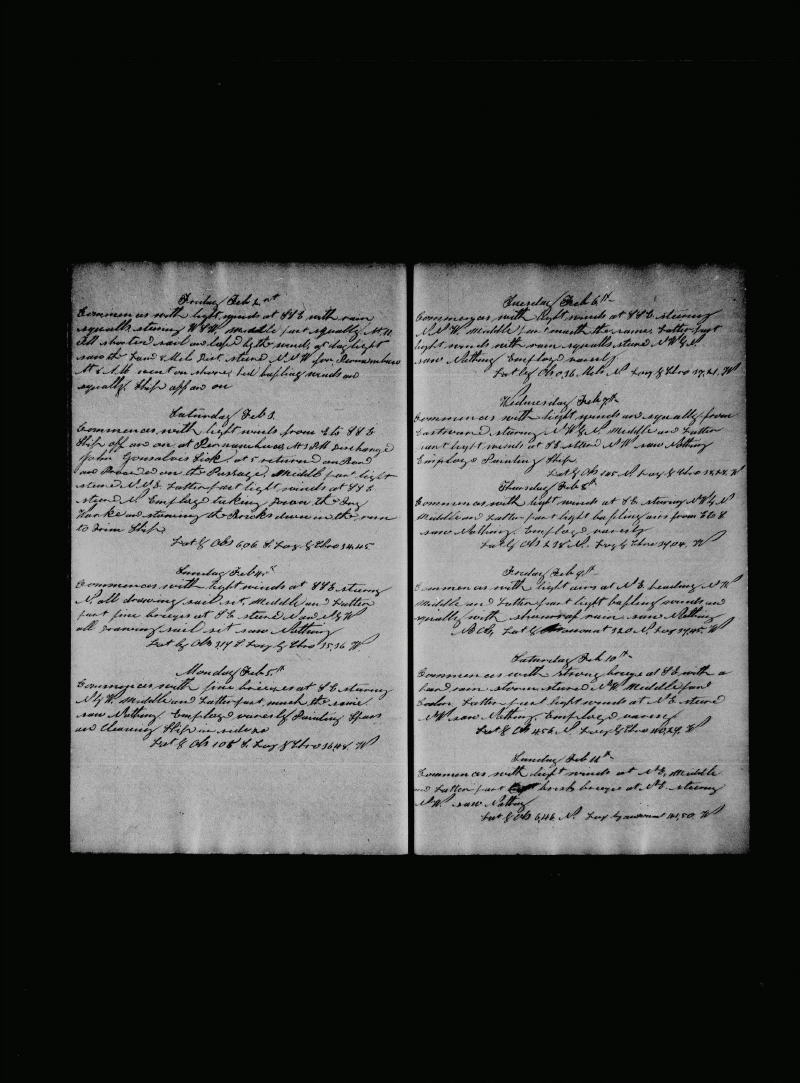 Friday Feb 2nd
Commences with light winds at SSE with rain
squalls stering WSW, middle part squally At 10
PM shortend sail and luft by the wind, at daylight
saw the Land 8 Mile Dist sterd N.N.W for Pernambuco
At 8 AM went on shore, had bafling winds and
squally Ship off an on
Saturday Feb 3
Commences with light winds from E to SSE
Ship off and on at Pernambuco, At 3 PM Discharge
John Gonsalves Sick at 5 returned on Board
and Proceeded on the Passage, Middle part light
sterd N.N.E. Latter part light winds at SSE
sterd N Employed taking down the Try
Works and stowing the Bricks down in the run
to Trim Ship
Lat by Obs 6.06 S Log by Chro 34.45
Sunday Feb 4th
Commences with light winds at SSE stering
N, all drawing sail set, Middle and Latter
part fine breezes at SE sterd N and N by W
all drawing sail set saw Nothing
Lat by Obs 3.14 S Log by Chro 35.36 W
Monday Feb 5th
Commences with fine breezes at SE stering
N by W. Middle and Latter part much the same
saw Nothing Employed variesly Painting Spars
and Cleaning Ship in side
Lat by Obs 108 S. Log by Chro 36.48. W
Tuesday Feb 6th
Commences with light winds at SSE stering
N.N.W. Middle part much the same, Latter part
light winds with rain squalls, sterd NW by N
saw Nothing Employed variesly
Lat by Obs 0.36 Mile N Log by Chro 37.21. W
Wednesday Feb 7th
Commences with light winds and squally from
Eastward, stering NW by N, Middle and Latter
part light winds at SE sterd NW saw Nothing
Employed Painting Ship
Lat by Obs 1.05 N Log by Chro 38.24. W
Thursday Feb 8th
Commences with light winds at SE stering NW by N
Middle and Latter part light bafling airs from E to S
saw Nothing. Employed variesly
Lat by Obs 2.38 N. Log by Chro 39.04. W
Friday Feb 9th
Commences with light airs at NE heading NW
Middle and Latter part light bafling winds and
squally with showers of rain saw Nothing
No Obs, Lat by account 3.20 N, Log 39.45. W
Saturday Feb 10th
Commences with strong breeze at SE with a
hard rain storm sterd NW Middle part
Latter part light winds at NE sterd
NW saw Nothing, Employed variesly
Lat by Obs 4.56 N Log by Chro 40.29. W
Sunday Feb 11th
Commences with light winds at NE, Middle
and Latter part brisk breezes at NE stering
NW. saw Nothing
Lat by Obs 6.46 N. Log by account 41.50. W